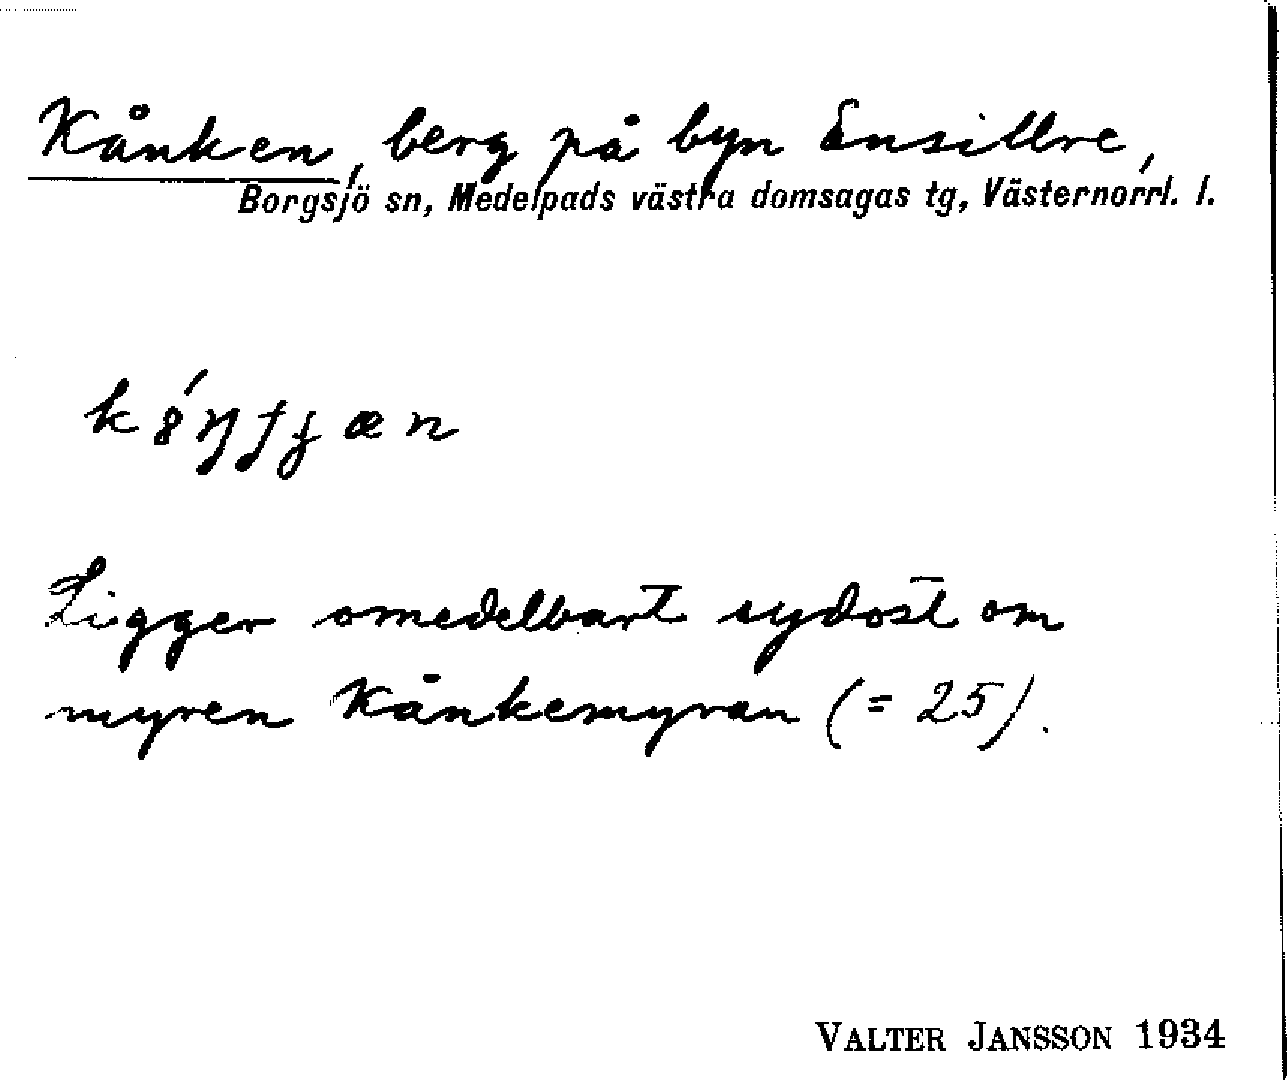 Kånken, berg på byn Ensillre,
Borgsjö sn, Medelpads västra domsagas tg, Västernorrl. l.
Ligger omedelbart sydost om
myren Kånkemyran (= 25).
VALTER JANSSON 1934